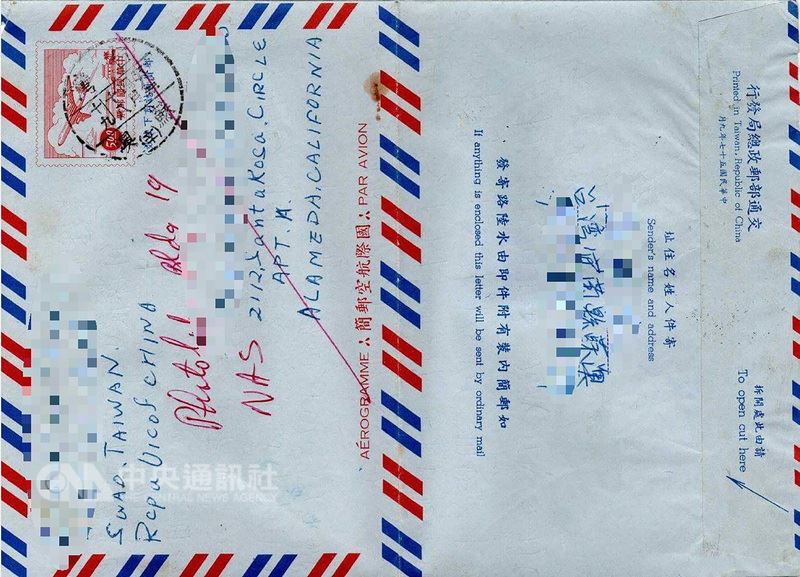 SWAO TAIWAN.
RepuUicOf CHINA
Bldg 19
NAS
2112, SantaRosa. CIRCLE
APT. M.
ALAMEDA, CALIFORNIA
AÉROGRAMME 國際航空郵簡 PAR AVION
500
交通部郵政總局發行
Printed in Taiwan, Republic of China
中華民國五十七年九月
請由此處拆開
To open cut here
寄件人姓名住址
Sender's name and address
台湾省
縣蘇澳
如郵簡內裝有附件即由水陸路寄發
If anything is enclosed this letter will be sent by ordinary mail
CNA 中央通訊社
THE CENTRAL NEWS AGENCY